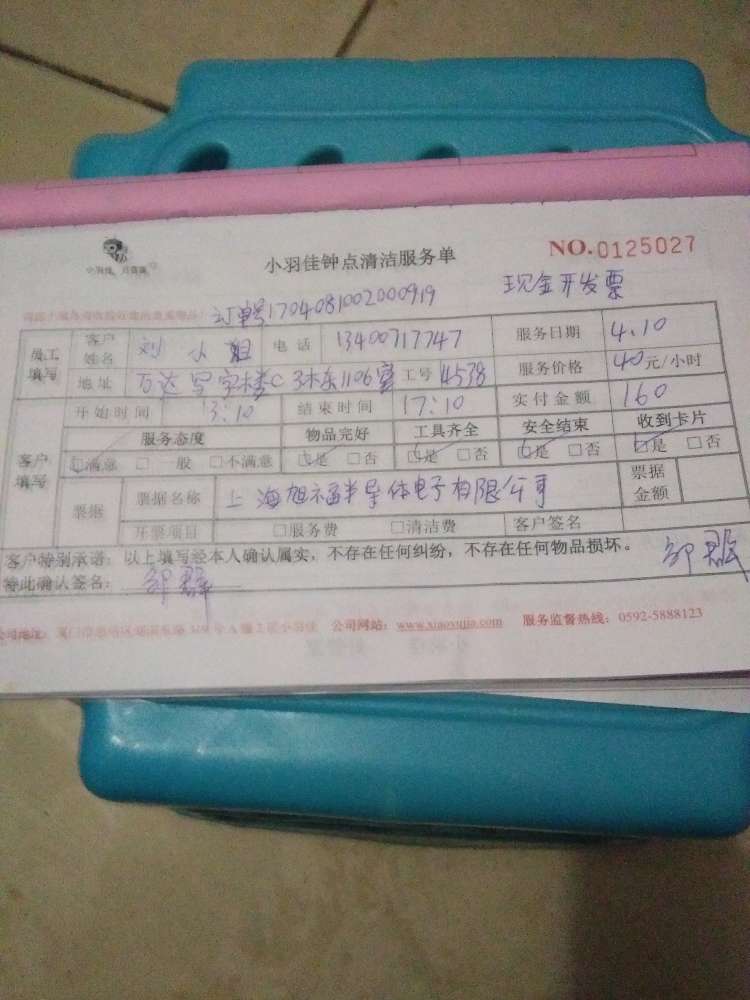 小羽佳钟点清洁服务单
NO.0125027
订单号1704081002000919 现金开发票
员工填写 客户姓名 刘小姐 电话 13400717747 服务日期 4.10
地址 万达写字楼C3栋1106室 工号 4538 服务价格 40元/小时
客户填写 开始时间 13:10 结束时间 17:10 实付金额 160
服务态度 物品完好 工具齐全 安全结束 收到卡片
□满意 □一般 □不满意 □是 □否 □是 □否 □是 □否 □是 □否
票据 票据名称 上海旭福半导体电子有限公司 票据金额
开票项目 □服务费 □清洁费 客户签名
客户特别承诺:以上填写经本人确认属实,不存在任何纠纷,不存在任何物品损坏。
特此确认签名:
公司地址: 公司网站:www.xiaoyujia.com 服务监督热线:0592-5888123